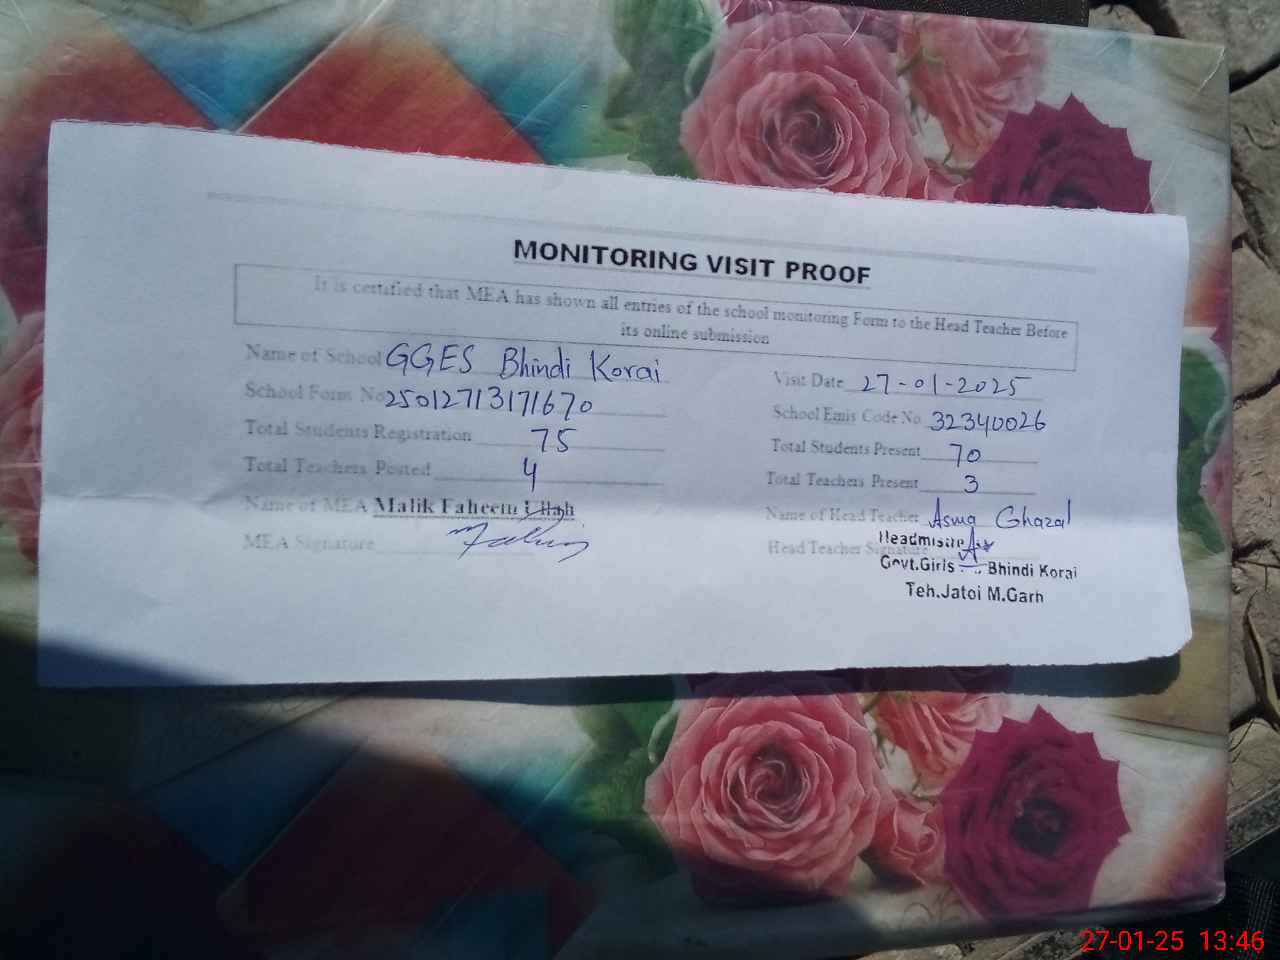 MONITORING VISIT PROOF
It is certified that MEA has shown all entries of the school monitoring Form to the Head Teacher Before
its online submission
Name of School GGES Bhindi Korai
Visit Date 27-01-2025
School Form No 25012713171670
School Emis Code No 32340026
Total Students Registration 75
Total Students Present 70
Total Teachers Posted 4
Total Teachers Present 3
Name of MEA Malik Faheem Ullah
Name of Head Teacher Asma Ghazal
MEA Signature
Head Teacher Signature
Headmistre
Govt.Girls Bhindi Korai
Teh.Jatoi M.Garh
27-01-25 13:46